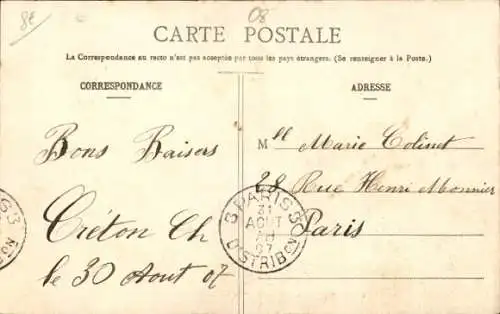 8E
08
CARTE POSTALE
La Correspondance au recto n'est pas acceptée par tous les pays étrangers. (Se renseigner à la Poste.)
CORRESPONDANCE
ADRESSE
Bons Baisers
Créton Ch
le 30 Aout 07
Mll Marie Colinet
28 Rue Henri Monnier
Paris
PARIS
31
AOUT
07
DISTRIBON